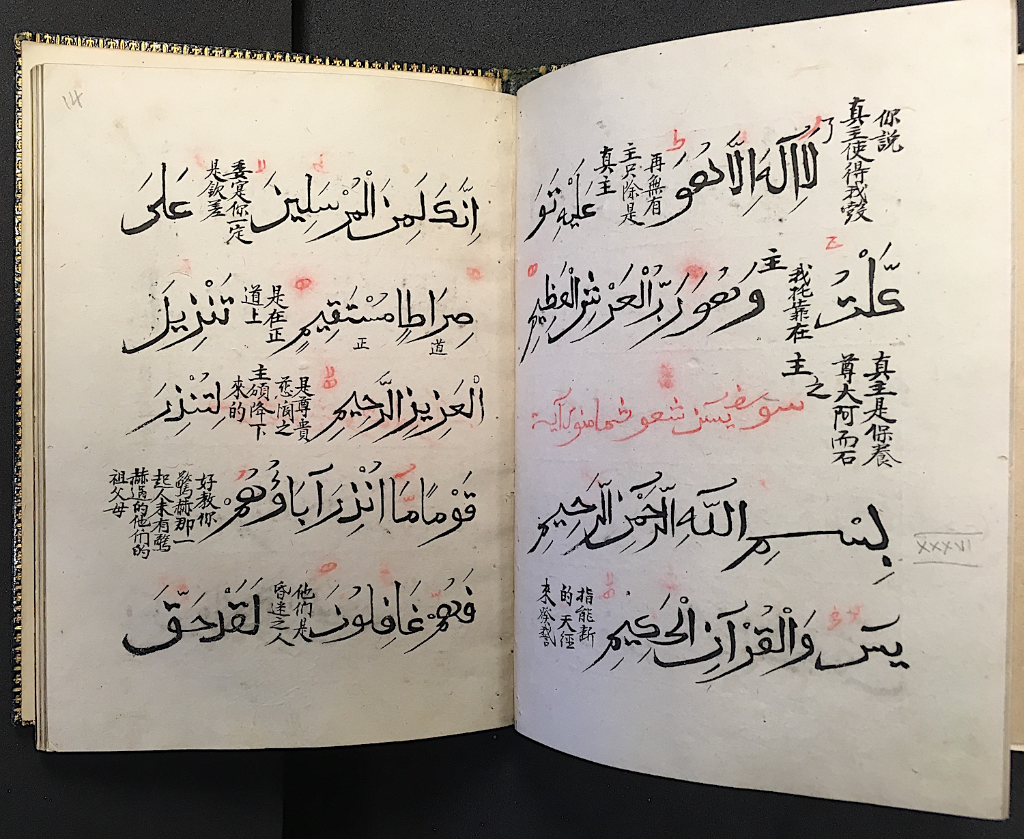 你説
真主使得我彀
了
لَا إِلَهَ إِلَّا هُوَ
再無有
主只除是
真主
عَلَيْهِ تَوَ
كَّلْتُ
我托靠在
主
وَهُوَ رَبُّ الْعَرْشِ الْعَظِيمِ
真主是保養
尊大阿而石
之
主
آية
بِسْمِ اللَّهِ الرَّحْمَنِ الرَّحِيمِ
XXXVI
يَس وَالْقُرْآنِ الْحَكِيمِ
指能断
的天經
來發誓
14
إِنَّكَ لَمِنَ الْمُرْسَلِينَ
委定你一定
是欽差
عَلَى
صِرَاطٍ مُسْتَقِيمٍ
道
正
是在正
道上
تَنْزِيلَ
الْعَزِيزِ الرَّحِيمِ
是尊貴
慈憫之
主頒降下
來的
لِتُنْذِرَ
قَوْمًا مَا أُنْذِرَ آبَاؤُهُمْ
好教你
驚赫那一
起人未有驚
赫過的他們的
祖父母
فَهُمْ غَافِلُونَ
他們是
昏迷之人
لَقَدْ حَقَّ